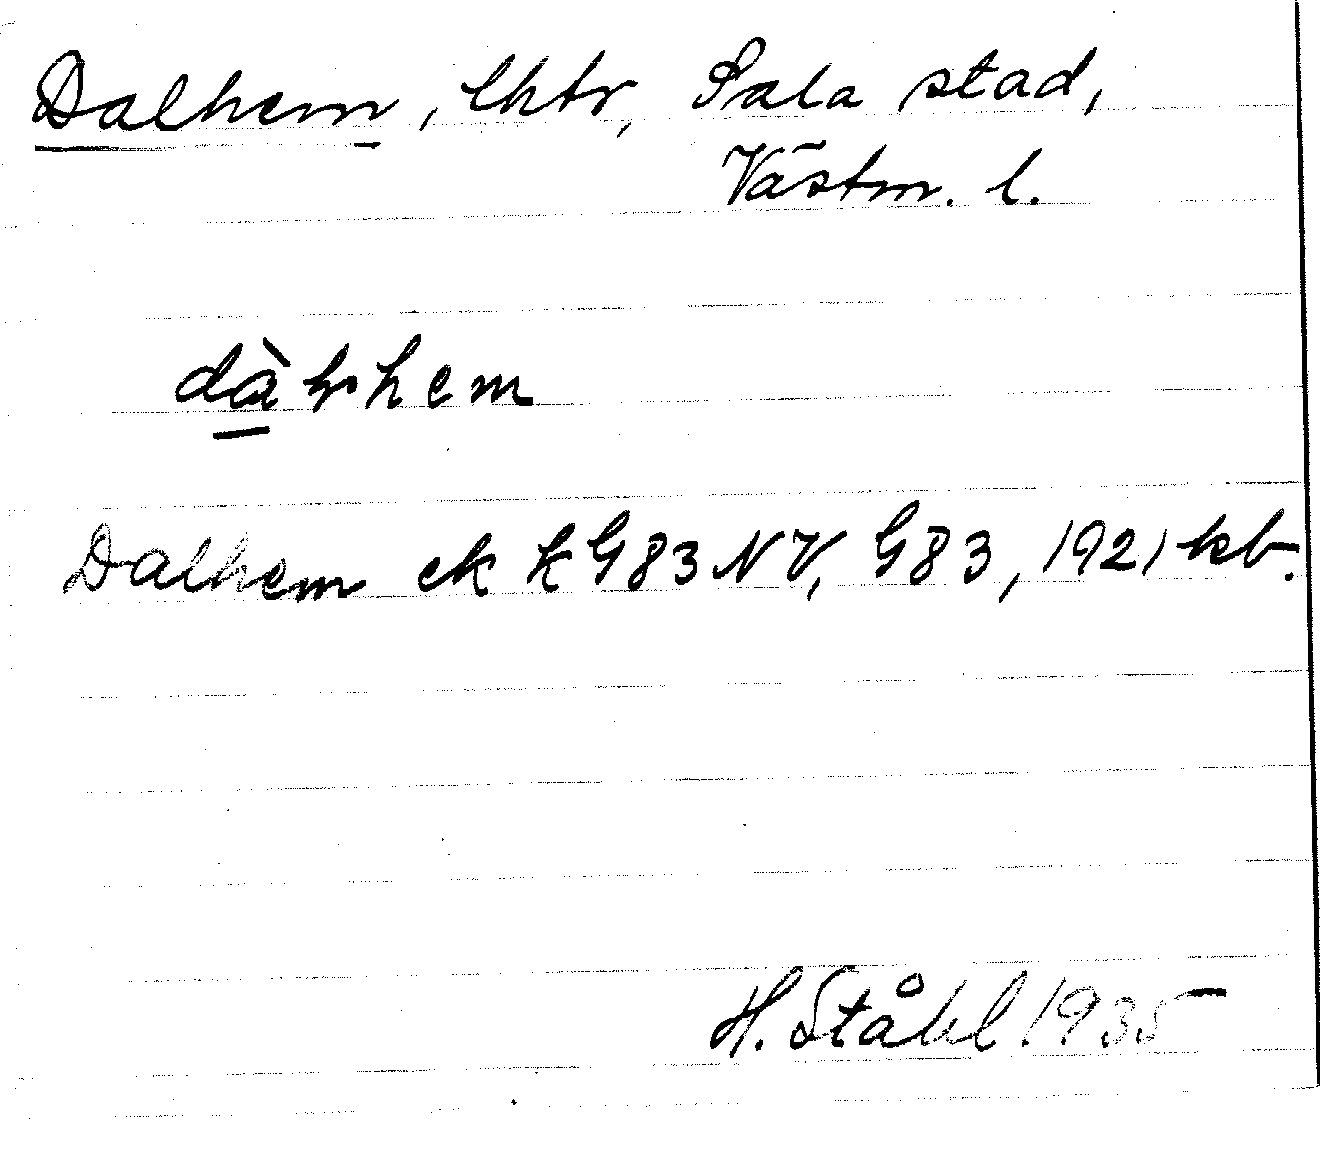 Dalhem, lhtr, Sala stad,
Västm. l.
dàꞎhem
Dalhem ek k G83 NV, G83, 1921 kb.
H. Ståhl 1935